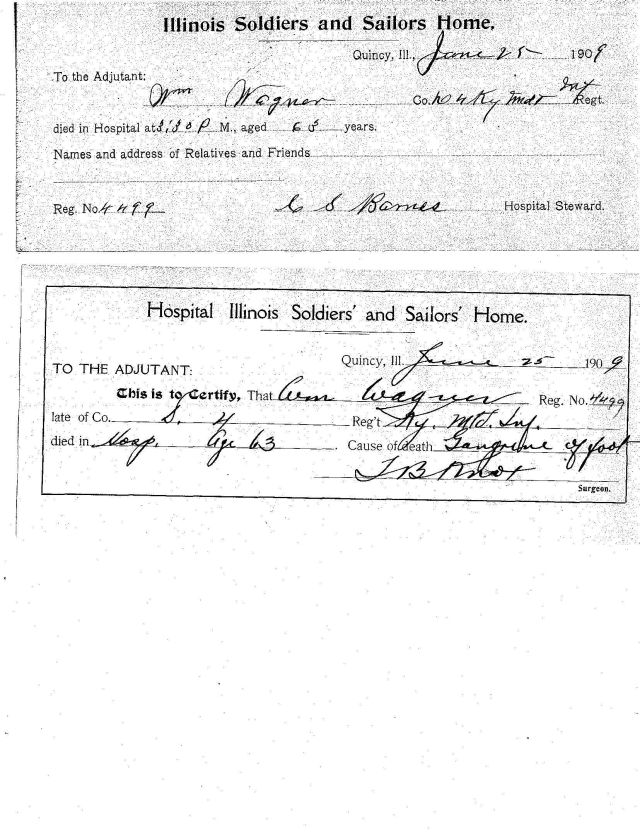 Illinois Soldiers and Sailors Home.
Quincy, Ill., June 25 1909
To the Adjutant:
Wm Wagner Co. 4 Ky Mtd Inf Regt.
died in Hospital at 3:30 P M., aged 63 years.
Names and address of Relatives and Friends
Reg. No. 4499 C S Barnes Hospital Steward.
Hospital Illinois Soldiers' and Sailors' Home.
Quincy, Ill. June 25 1909
TO THE ADJUTANT:
This is to Certify, That Wm Wagner Reg. No. 4499
late of Co. 4 Reg't Ky. Mtd. Inf.
died in Hosp. Age 63 Cause of death Gangrene of foot
Surgeon.